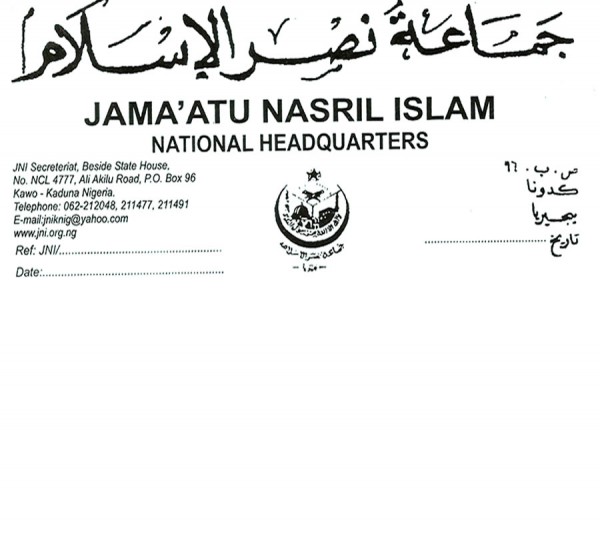 جماعة نصر الإسلام
JAMA'ATU NASRIL ISLAM
NATIONAL HEADQUARTERS
JNI Secreteriat, Beside State House,
No. NCL 4777, Ali Akilu Road, P.O. Box 96
Kawo - Kaduna Nigeria.
Telephone: 062-212048, 211477, 211491
E-mail:jniknig@yahoo.com
www.jni.org.ng
Ref: JNI/......................................................
Date:......................................................
ص.ب. ٩٦
كدونا
نيجيريا
تاريخ ........................................
جماعة نصر الإسلام